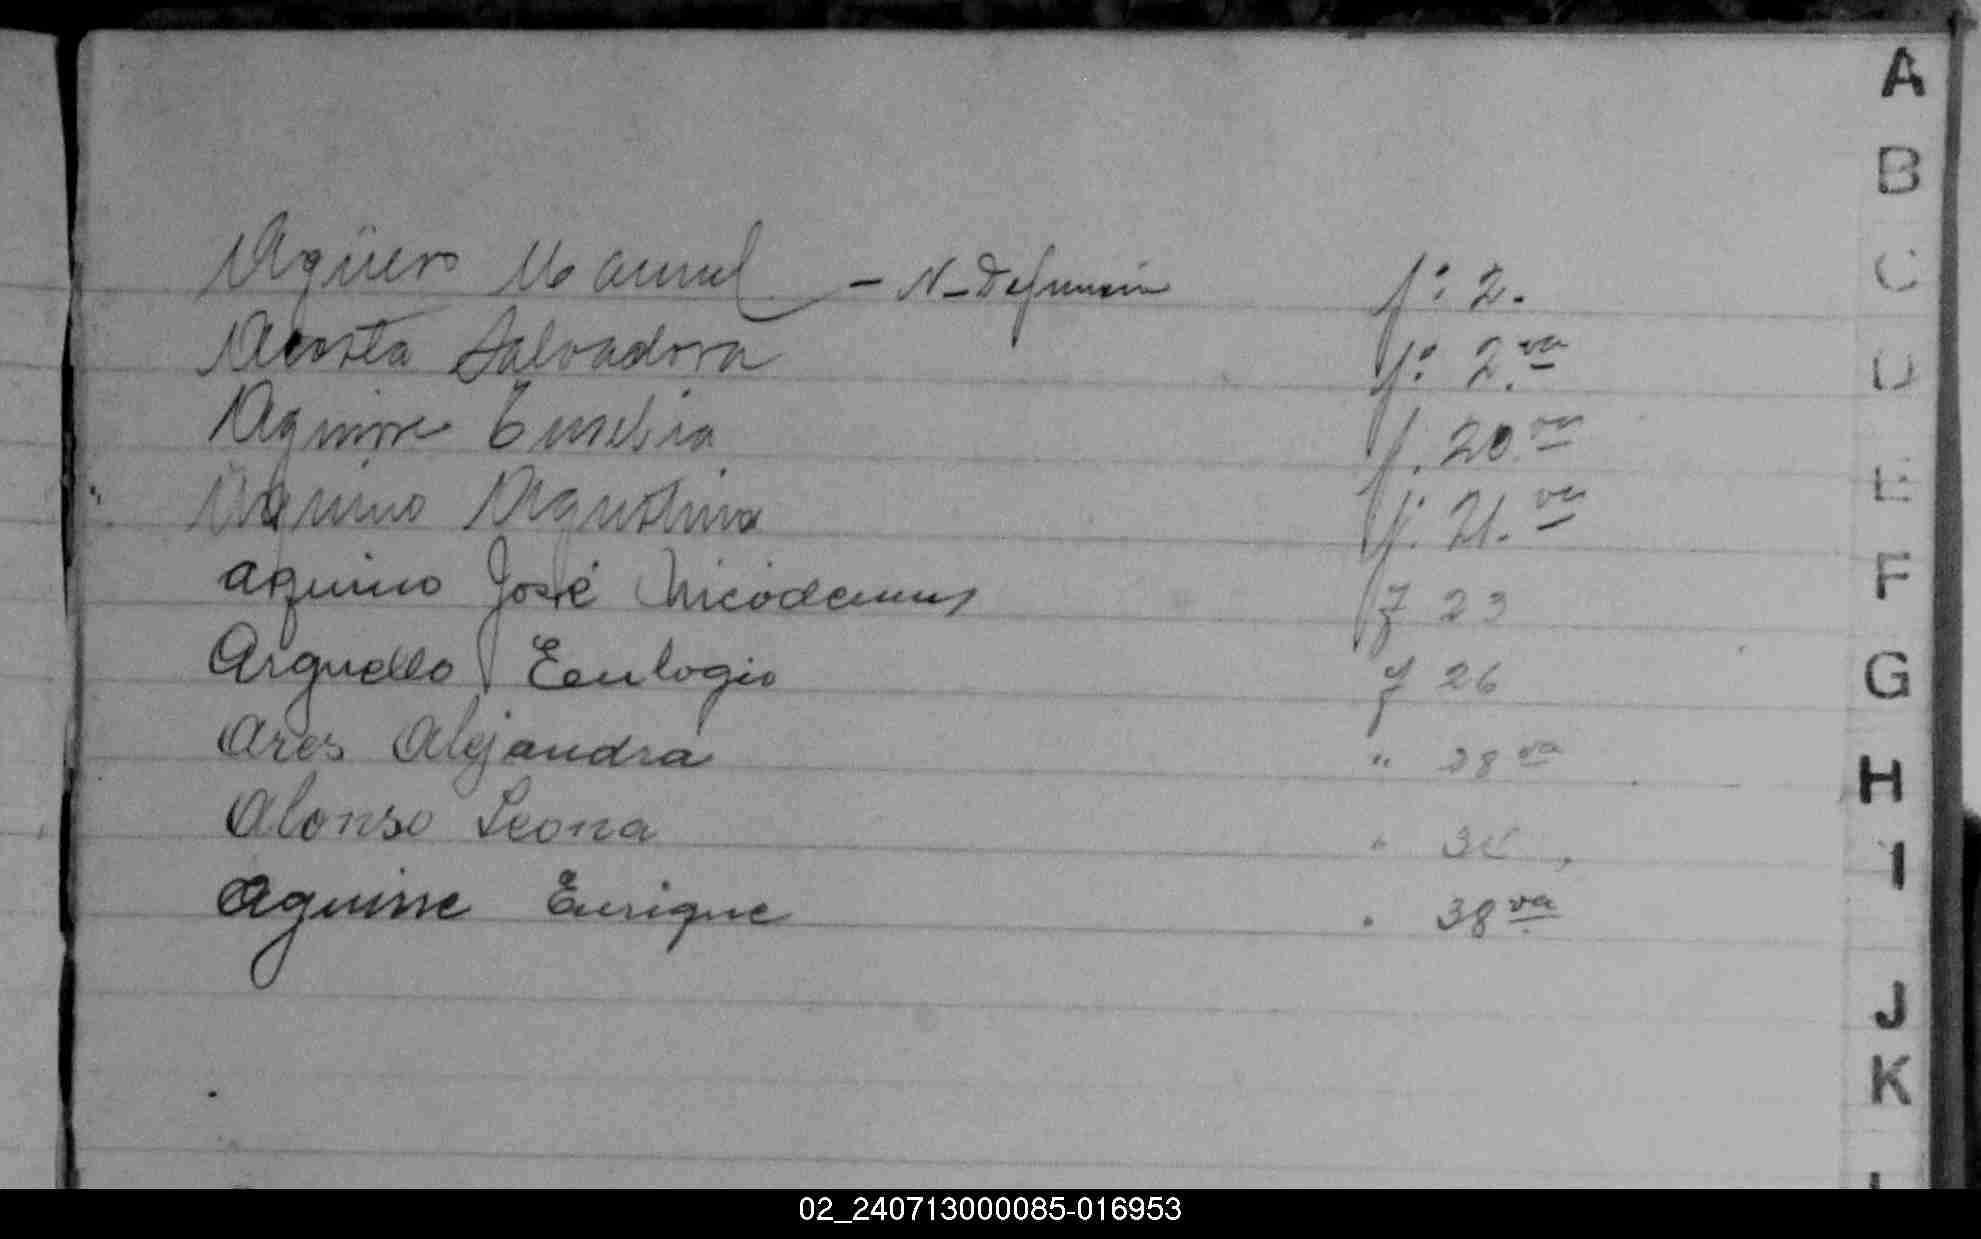 Agüero Manuel - N-Defunción f: 2.
Acosta Salvadora f: 2.va
Aguirre Eusebia f. 20 va
Aquino Agustina f: 21. va
Aquino José Nicodemus f 23
Arguello Eeulogio f 26
Ares Alejandra " 28 va
Alonso Leona "
Aguirre Enrique . 38 va
A
B
C
D
E
F
G
H
I
J
K
02_240713000085-016953